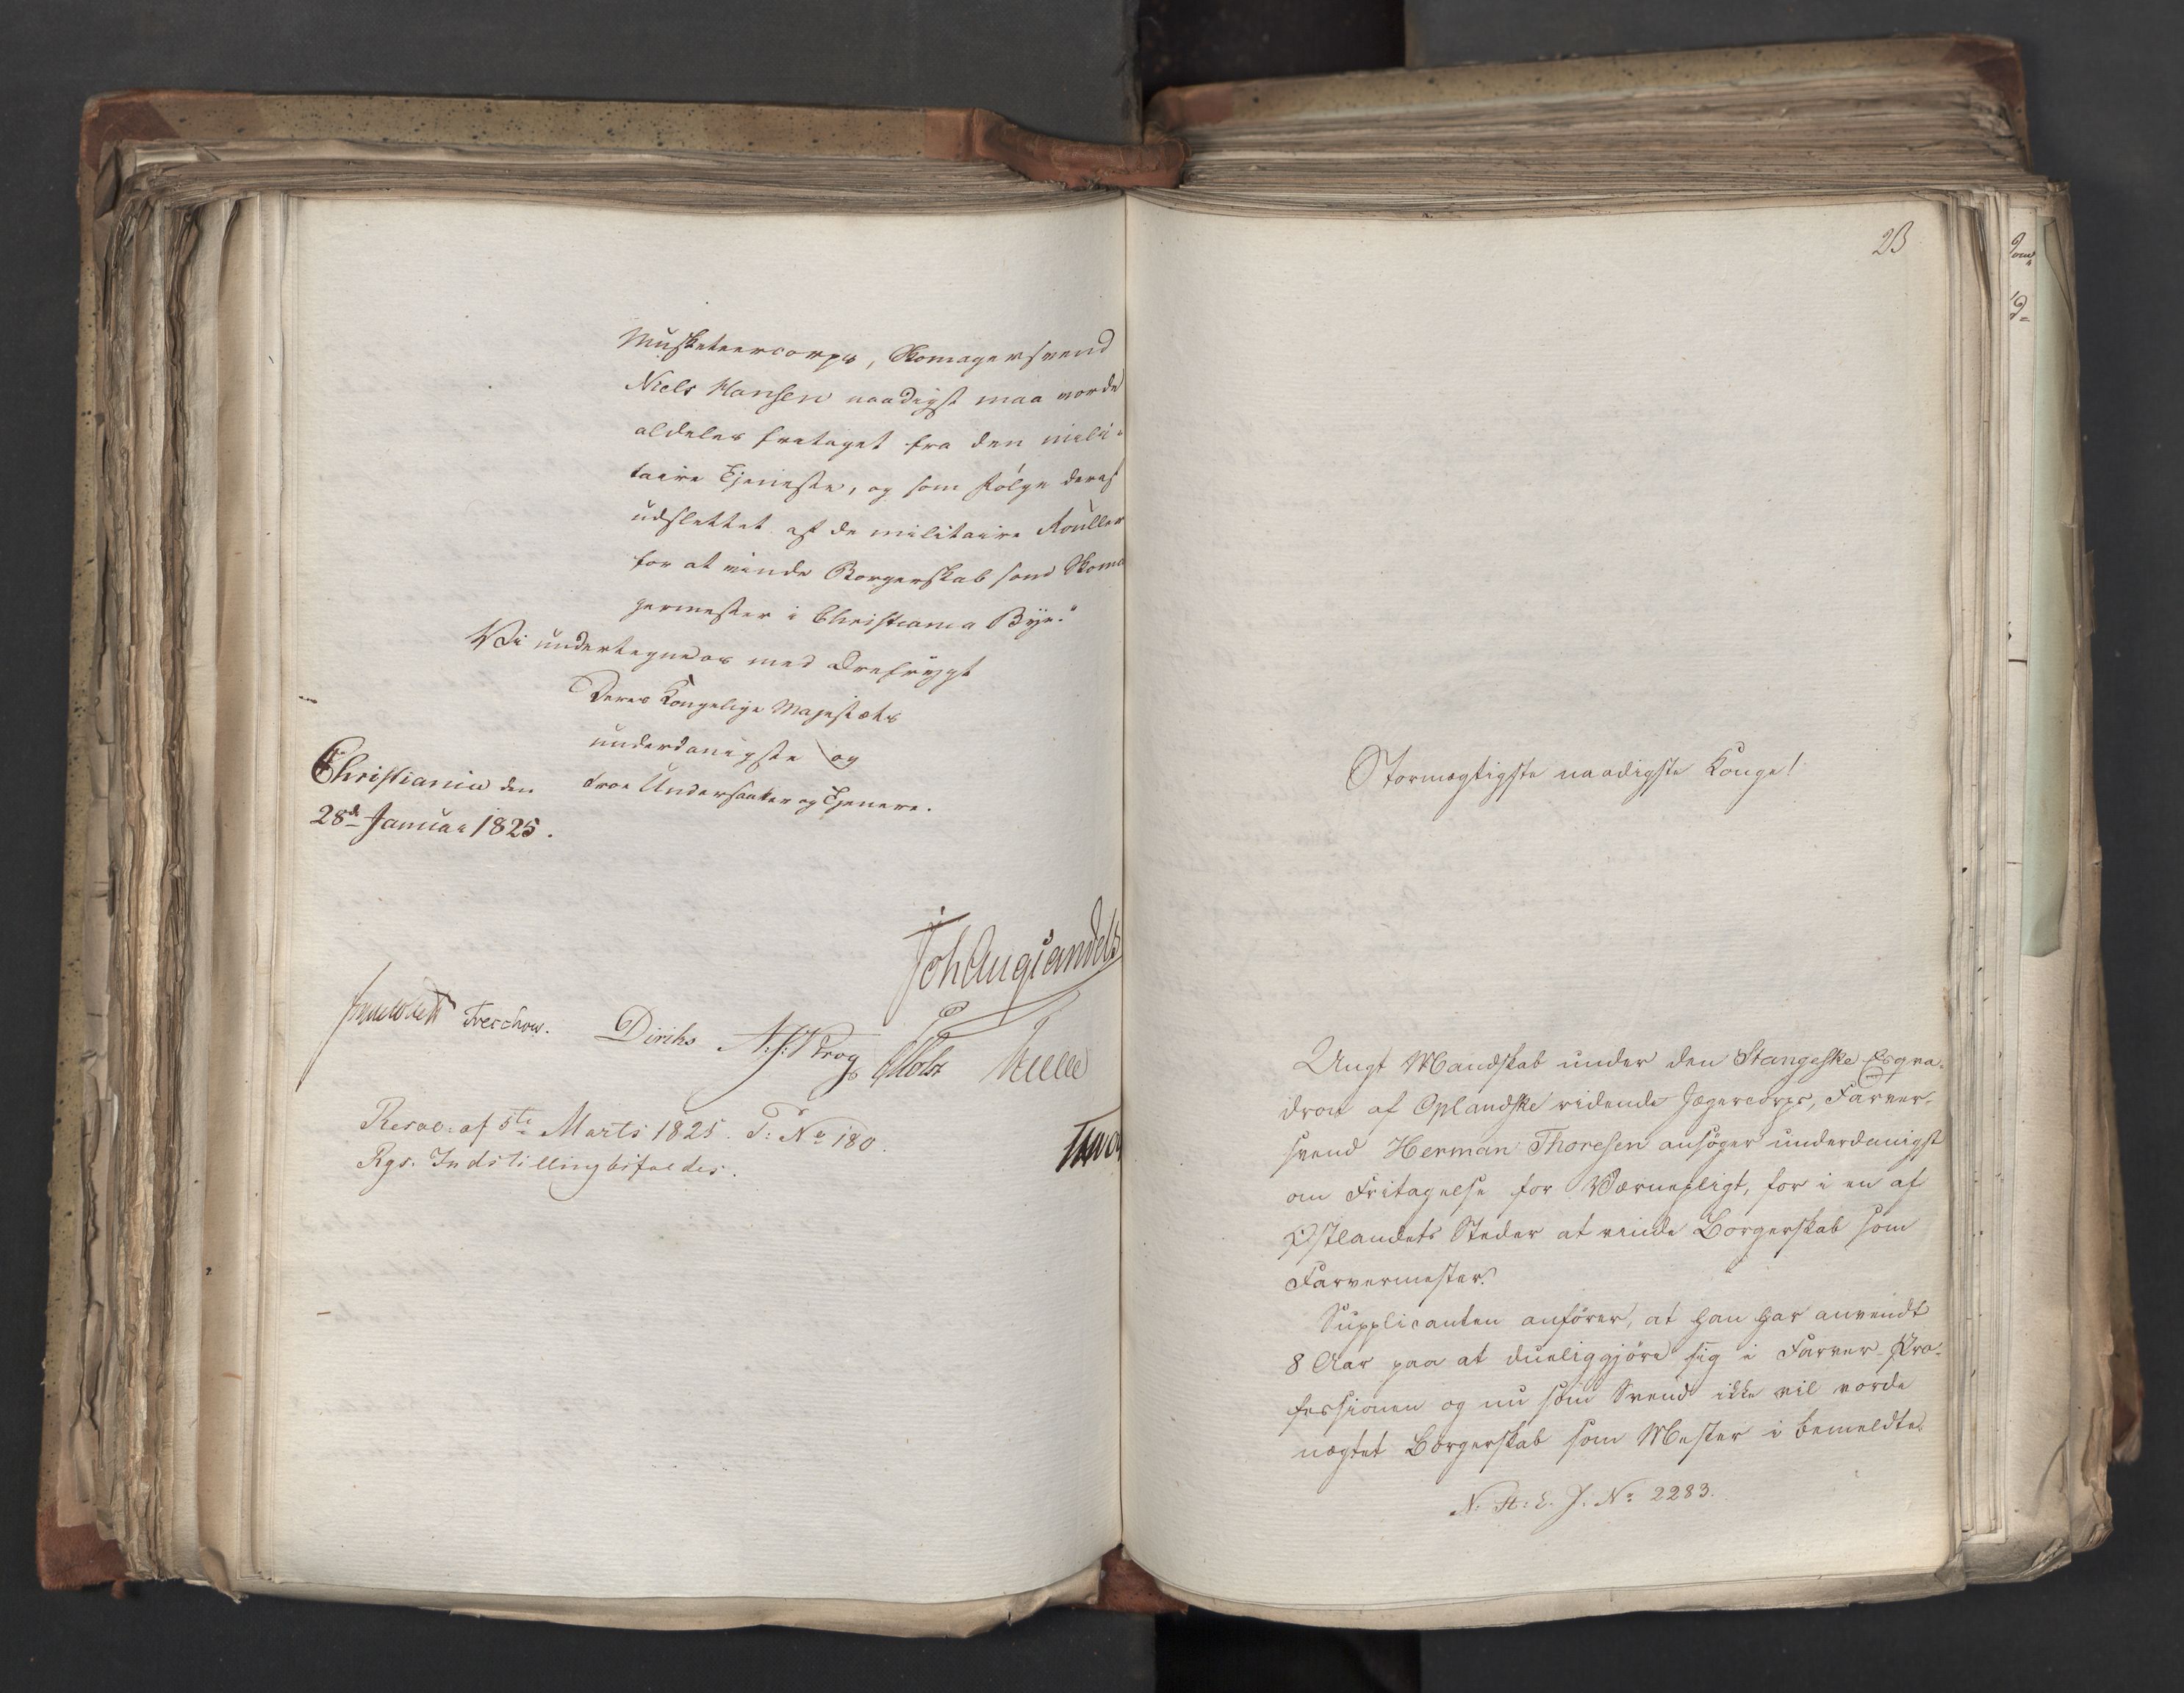 Musketeercorps, Skomagersvend
Niels Hansen naadigst maa vorde
aldeles fretaget fra den mili-
taire Tjeneste, og som Følge deraf
udslettet af de militaire Rouller
for at vinde Borgerskab som Skoma
germester i Christiania Bye."
Vi undertegne os med Ærefrygt
Deres Kongelige Majestæts
underdanigste og
troe Undersaatter og Tjenere.
Christiania den
28de Januar 1825.
Joh Aug Sandels
Treschow. Diriks A:S: Krog Holst
Resol: af 5te Marts 1825. P: No 180.
Rgs. Indstilling bifaldes.
23
Stormægtigste naadigste Konge!
Ungt Mandskab under den Stangeske Esqva-
dron af Oplandske ridende Jægercorps, Farver-
svend Herman Thoresen ansøger underdanigst
om Fritagelse for Værnepligt, for i en af
Østlandets Steder at vinde Borgerskab som
Farvermester.
Supplicanten anfører, at han har anvendt
8 Aar paa at dueliggjøre sig i Farver-Pro-
fessionen og nu som Svend ikke vil vorde
nægtet Borgerskab som Mester i bemeldte
N: St: E. J. No 2283.